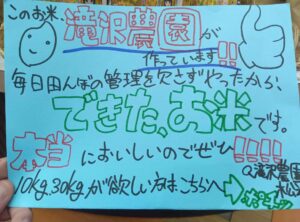 このお米、
滝沢農園が
作っています!!
毎日田んぼの管理を欠さずやったから、
できた、お米です。
本当においしいのでぜひ!!!!
10kg、30kgが欲しい方はこちらへ
@滝沢農園